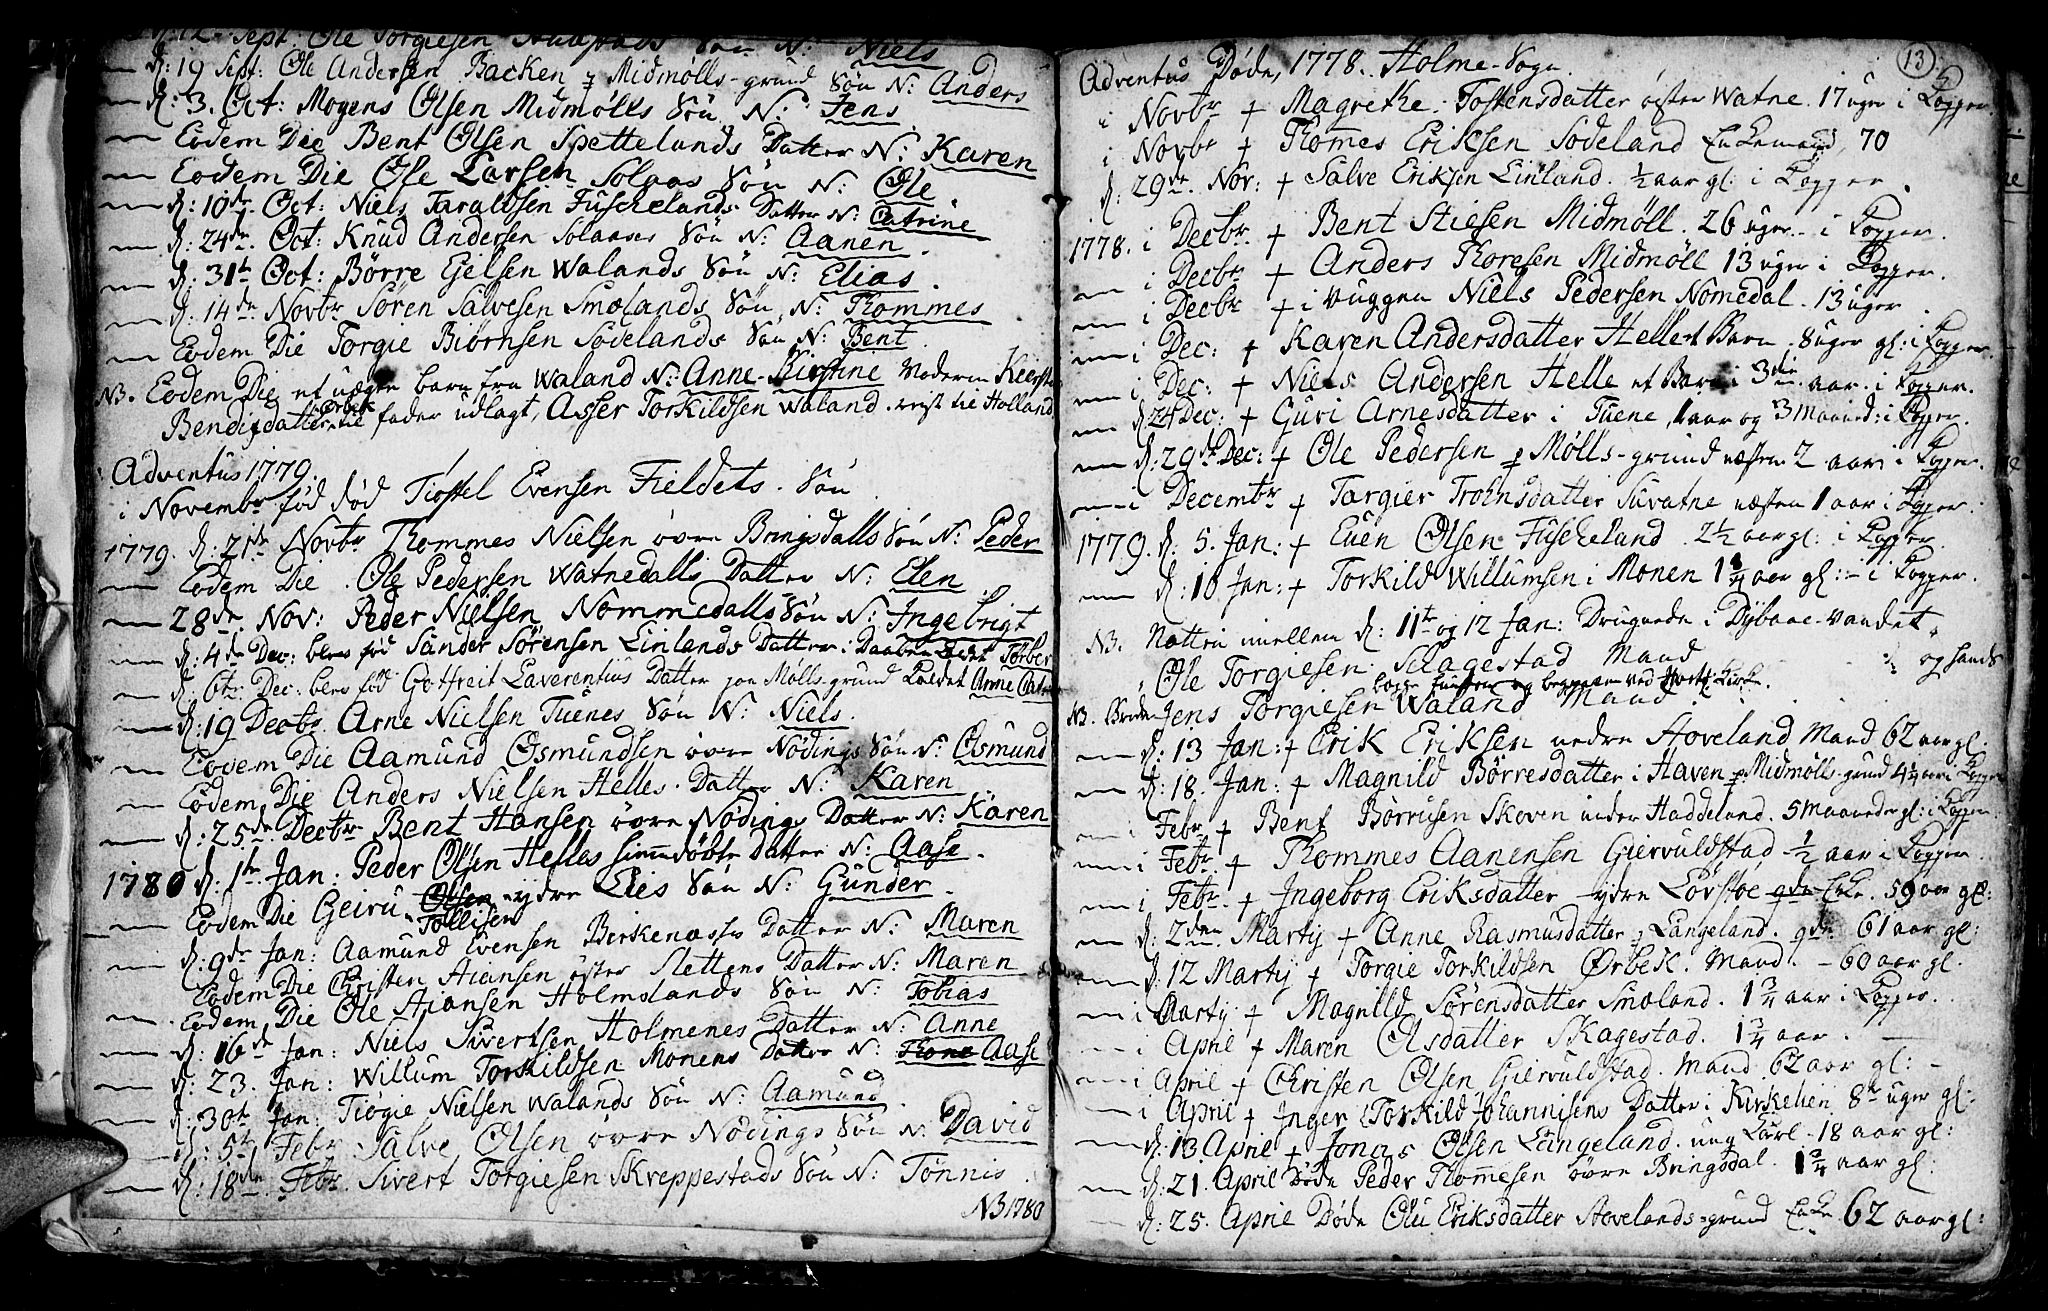 d: 12. Sept: Ole Torgiesen Søn N: Niels
d: 19 Sept: Ole Andersen Backen p Midmølls-grund Søn N: Anders
d: 3. Oct: Mogens Olsen Midmølls Søn N: Jens
Eodem Die Bent Olsen Spettelands Datter N: Karen
Eodem Die Ole Larsen Solaas Søn N: Ole
d: 10de Oct: Niels Taraldsen Fuschelands Datter N: Catrine
d: 24de Oct: Knud Andersen Solaases Søn N: Aanen.
d: 31te Oct: Børre Ejelsen Walands Søn N: Elias.
d: 14de Novbr Søren Salvesen Smølands Søn N: Thommes
Eodem Die Torgie Biørnsen Sødelands Søn N: Bent.
NB. Eodem Die et uægte barn fra Waland N: Anne-Kirstine Moderen Keersten
Bendixdatter Ørbek til fader udlagt, Asser Torkildsen Waland. rejst til Holland
Adventus 1779.
i Novembr fød død Tiøstel Evensen Fieldets Søn
1779. d: 21de Novbr Thommes Nielsen øvre Bringsdalls Søn N: Peder
Eodem Die. Ole Pedersen Watnedalls Datter N: Elen
28de Nov: Peder Nielsen Nommedalls Søn N: Ingebrigt
d: 4de Dec: blev fød Sander Sørensen Linlands Datter i Daaben kaldet Torber
d: 6te Dec: blev fød Gotfreit Laverentius Datter paa Mølls-grund kaldet Anne Catri
d: 19 Decbr Arne Nielsen Tuenes Søn N: Niels.
Eodem Die Aamund Osmundsen øvre Nødings Søn N: Osmund
Eodem Die Anders Nielsen Helles Datter N: Karen
d: 25de Decbr Bent Hansen øvre Nødings Datter N: Karen
1780 d: 1te Jan. Peder Olsen Helles hiemdøbte Datter N: Aase.
Eodem Die Geiru Olsen ydre Eies Søn N: Gunder.
Tollisen
d: 9de Jan: Aamund Evensen Birkenæses Datter N: Maren
Eodem Die Christen Hansen øster Slettens Datter N: Maren
Eodem Die Ole Hansen Holmslands Søn N: Tobias
d: 16de Jan: Niels Sivertsen Holmenes Datter N: Anne
d: 23. Jan: Willum Torkildsen Monens Datter N: Thone Aase
d: 30te Jan: Tiøgie Nielsen Walands Søn N: Aamund.
d: 5te Febr Salve Olsen øvre Nødings Søn N: David
d: 18de Febr. Sivert Torgiesen Skreppestads Søn N: Tønnis.
NB 1780
13
Adventus Døde, 1778. Holme-Sogn
i Novbr + Magrethe Tostensdatter øster Watne. 17 uger i Kopper.
i Novbr + Thomes Eriksen Sødeland Enkemand, 70
d: 29de Nov: + Salve Eriksen Linland. ½ aar gl: i Kopper.
1778. i Decbr. + Bent Stiesen Midmöll. 26 uger - i Kopper.
i Decbr + Anders Thoresen Midmöll 13 uger i Kopper.
i Decbr + i vuggen Niels Pedersen Nomedal. 13 uger
i Dec: + Karen Andersdatter Helle et Barn. 8 uger gl: i Kopper.
i Dec: + Niels Andersen Helle et Barn i 3die aar. i Kopper.
d: 24 Dec: + Guri Arnesdatter i Tuene, 1 aar og 3 Maaned: i Kopper.
d: 29de Dec: + Ole Pedersen p Mølls-grund næsten 2 aar i Kopper.
i Decembr + Targier Trohnsdatter Suvatne næsten 1 aar i Kopper.
1779. d: 5. Jan: + Euen Olsen Fuscheland. 2½ aar gl: i Kopper.
d: 10 Jan: + Torkild Willumsen i Monen 1¾ aar gl: - i Kopper.
NB. Natten imellem d: 11te og 12 Jan: Druknede i Dybaae-Vandet
Ole Torgiesen Skagestad Mand og hands
NB. Broder Jens Torgiesen Waland Mand.
d: 13 Jan: + Erik Eriksen nedre Stoveland Mand 62 aar gl:
d: 18. Jan: + Magnild Børresdatter i Haven p Midmølls-grund 4¼ aar i Kopper
i Febr + Bent Børrusen Skoven under Haddeland. 5 Maaneder gl: i Kopper
i Febr. + Thommes Aanensen Giervuldstad - ½ aar i Kopper.
i Febr. + Ingeborg Eriksdatter - ydre Lørstoe gde Enke. 59 aar gl:
d: 2den Martij + Anne Rasmusdatter Langeland. gde 61 aar gl:
d: 12 Martij + Torgie Torkildsen Ørbek. Mand. - 60 aar gl.
i Martij + Magnild Sørensdatter Smøland. 1¾ aar i Kopper.
i April + Maren Olsdatter Skagestad. 1¾ aar.
i April + Christen Olsen Giervuldstad. Mand 62 aar gl: -
i April + Inger Torkild Johannisens Datter i Kirkelien 8te uger gl:
d: 13 April + Jonas Olsen Langeland. ung Karl - 18 aar gl:
d: 21. April Døde Peder Thomesen øvre Bringsdal. 1¾ aar gl:
d: 25. April Døde Olu Eriksdatter Stovelands-grund Enke 62 aar gl: